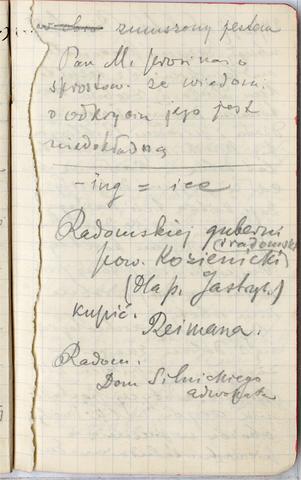 w obro zmuszony jestem
Pan M. prosi nas o
sprostow. że wiadom.
o odkryciu jego jest
niedokładną
-ing = ice
Radomskiej guberni
(radomski
pow. Kozienicki
(dla p. Jastrz.)
kupić.
Reimana.
Radom.
Dom Silnickiego
adwokata